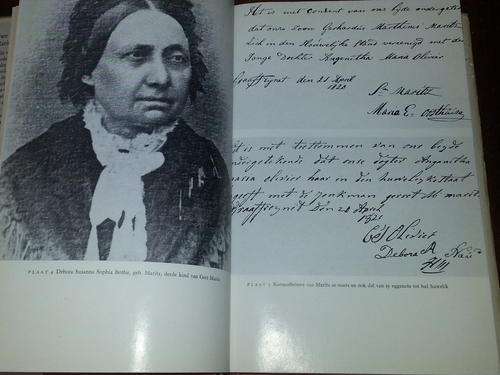 PLAAT 4 Debora Susanna Sophia Bothie, geb. Maritz, derde kind van Gert Maritz
Het is met consent van ons byde ondergetekende
dat ons soon Gerhardus Marthinus Maritz
sich in den Houwelyks Plans verenigd met de
Jonge Dochter Angenitha Maria Olivier
Graaffreynet den 21 April
S Maritz
Maria E.
Het is met toestemming van ons beyde
ondergetekende dat onse dogter Anganitha
maria olivier haar in den huwelykx staat
met de Jonkman gerrit M marit.
Graaffreynet den 21 April
1821
Olivier
Debora A
PLAAT 5 Konsentbriewe van Maritz se ouers en ook dié van sy eggenote tot hul huwelik